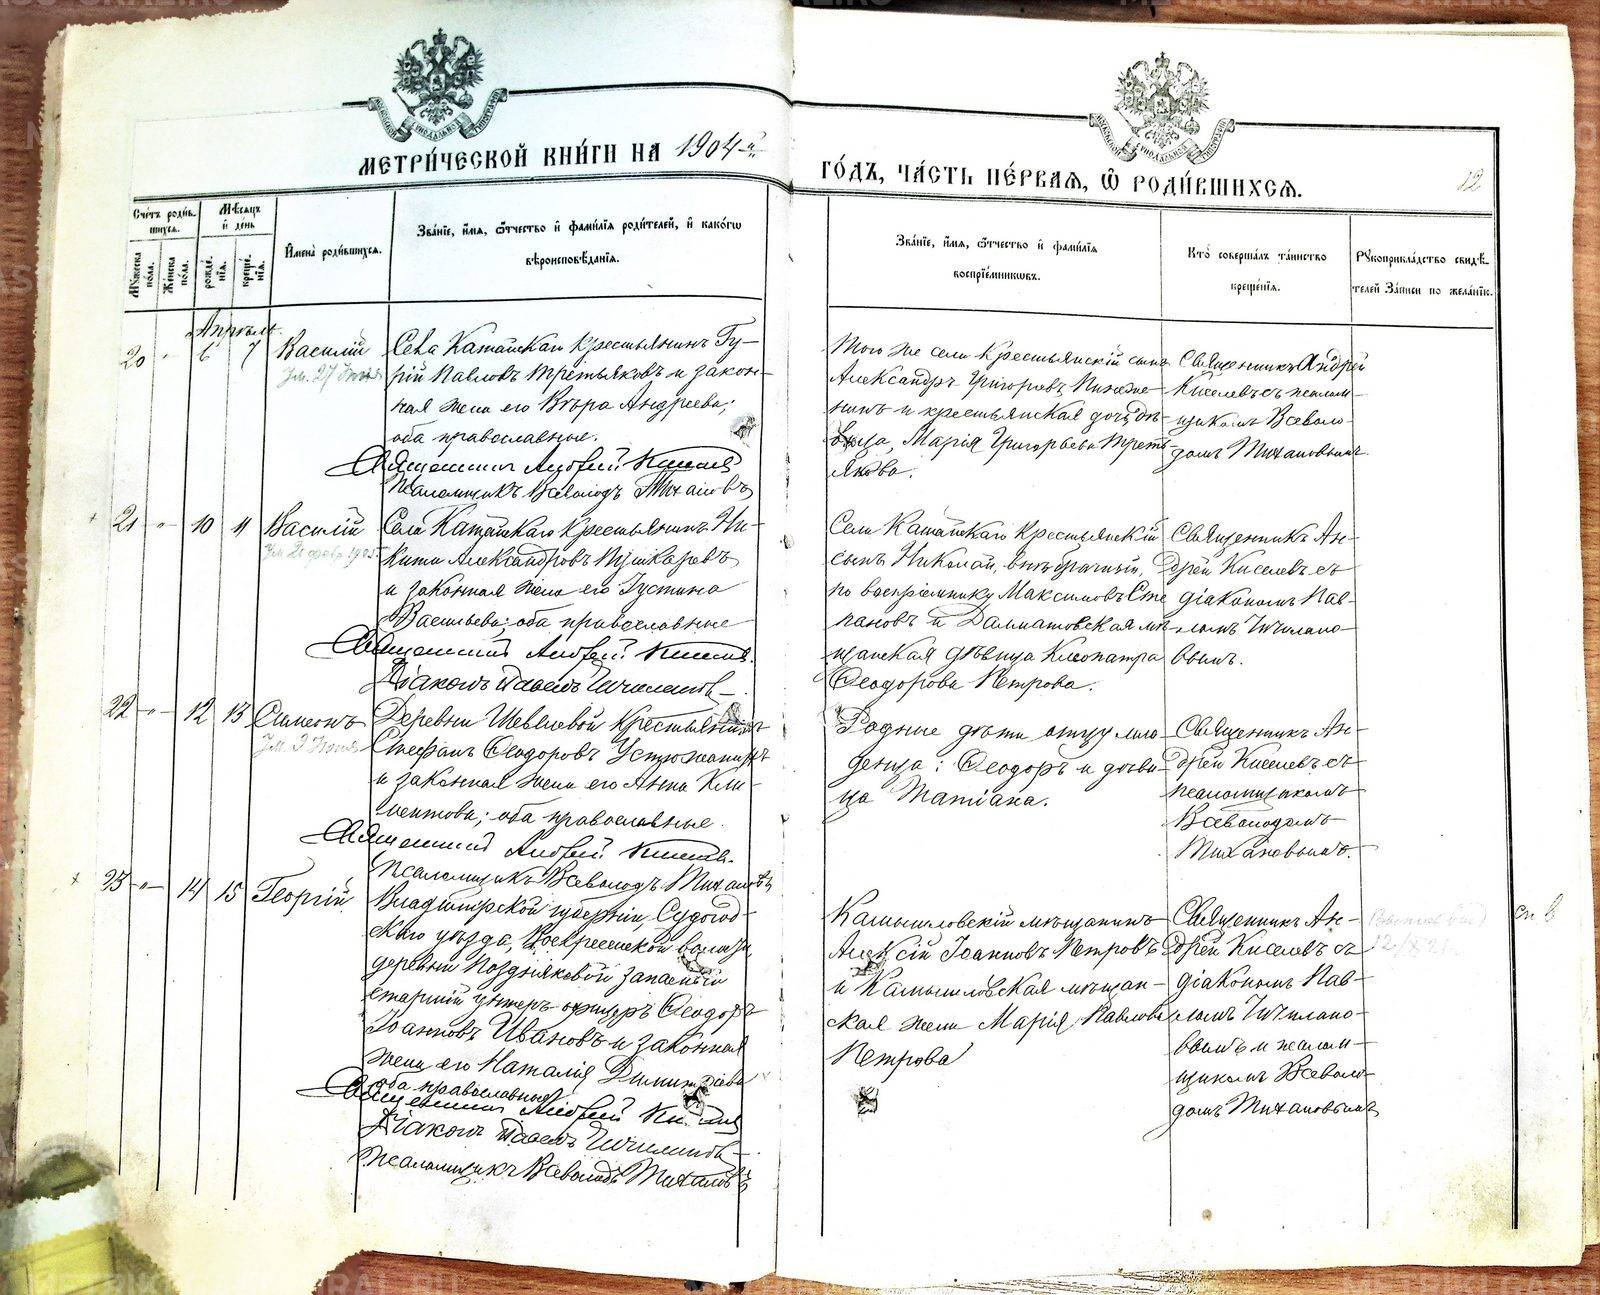 МЕТРИ́ЧЕСКОЙ КНИ́ГИ НА 1904-й
ГО́ДЪ, ЧА́СТЬ ПЕ́РВАѦ, Ѡ҆ РОДИ́ВШИХСѦ.
12
Сче́тъ роди́в-
шихсѧ.
Мꙋжеска по́ла.
Же́нска по́ла.
Мѣ́сѧцъ
и҆ де́нь
рожде́нїѧ.
креще́нїѧ.
И҆мена̀ роди́вшихсѧ.
Зва́нїе, и҆́мѧ, ѻ҆́тчество и҆ фами́лїѧ роди́телей, и҆ како́гѡ
вѣроисповѣ́данїѧ.
Зва́нїе, и҆́мѧ, ѻ҆́тчество и҆ фами́лїѧ
воспрїе́мникѡвъ.
Кто̀ соверша́лъ та́инство
креще́нїѧ.
Рꙋкоприкла́дство свидѣ́-
телей За́писи по жела́нїю.
Апрѣль.
20 " 6 7 Василій
Ум. 27 Іюня
Села Катайскаго крестьянинъ Гу-
рій Павловъ Третьяковъ и закон-
ная жена его Вѣра Андреева;
оба православные.
Священникъ Андрей Киселевъ
Псаломщикъ Всеволодъ Тихановъ
Того же села крестьянскій сынъ
Александръ Григорьевъ
и крестьянская дочь дѣ-
вица, Марія Григорьева Треть-
якова.
Священникъ Андрей
Киселевъ съ псалом-
щикомъ Всеволо-
домъ Тихановымъ.
21 " 10 11 Василій
Ум. 21 февр. 1905
Села Катайскаго крестьянинъ Ни-
кита Александровъ Пушкаревъ
и законная жена его Іустина
Васильева; оба православные
Священникъ Андрей Киселевъ.
Діаконъ Павелъ
Села Катайскаго крестьянскій
сынъ Николай, внѣбрачный,
по воспріемнику Максимовъ Сте
пановъ и Далматовская мѣ-
щанская дѣвица Клеопатра
Ѳеодорова Петрова.
Священникъ Ан-
дрей Киселевъ съ
діакономъ Пав-
ломъ
вымъ.
22 " 12 13 Симеонъ
Ум. 3 Іюня
Деревни Шевелевой крестьянинъ
Стефанъ Ѳеодоровъ Устюжанинъ
и законная жена его Анна Кли-
ментова; оба православные.
Священникъ Андрей Киселевъ.
Псаломщикъ Всеволодъ Тихановъ
Родные дѣти отцу мла-
денца: Ѳеодоръ и дѣви-
ца Татіана.
Священникъ Ан-
дрей Киселевъ съ
псаломщикомъ
Всеволодомъ
Тихановымъ.
23 " 14 15 Георгій
Владимірской губерніи, Судогод-
скаго уѣзда, Воскресенской волости,
деревни Поздняковой запасный
старшій унтеръ-офицеръ Ѳеодоръ
Іоанновъ Ивановъ и законная
жена его Наталія Димитріева
оба православные
Священникъ Андрей Киселевъ
Діаконъ Павелъ
Псаломщикъ Всеволодъ Тихановъ
Камышловскій мѣщанинъ
Алексій Іоанновъ Петровъ
и Камышловская мѣщан-
ская жена Марія Павлова
Петрова
Священникъ Ан-
дрей Киселевъ съ
діакономъ Пав-
ломъ
вымъ и псалом-
щикомъ Всеволо-
домъ Тихановымъ